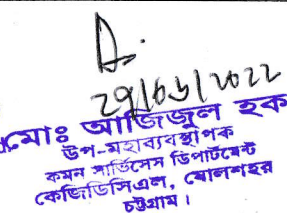 29/03/2022
মোঃ আজিজুল হক
উপ-মহাব্যবস্থাপক
কমন সার্ভিসেস ডিপার্টমেন্ট
কেজিডিসিএল, ষোলশহর
চট্টগ্রাম।